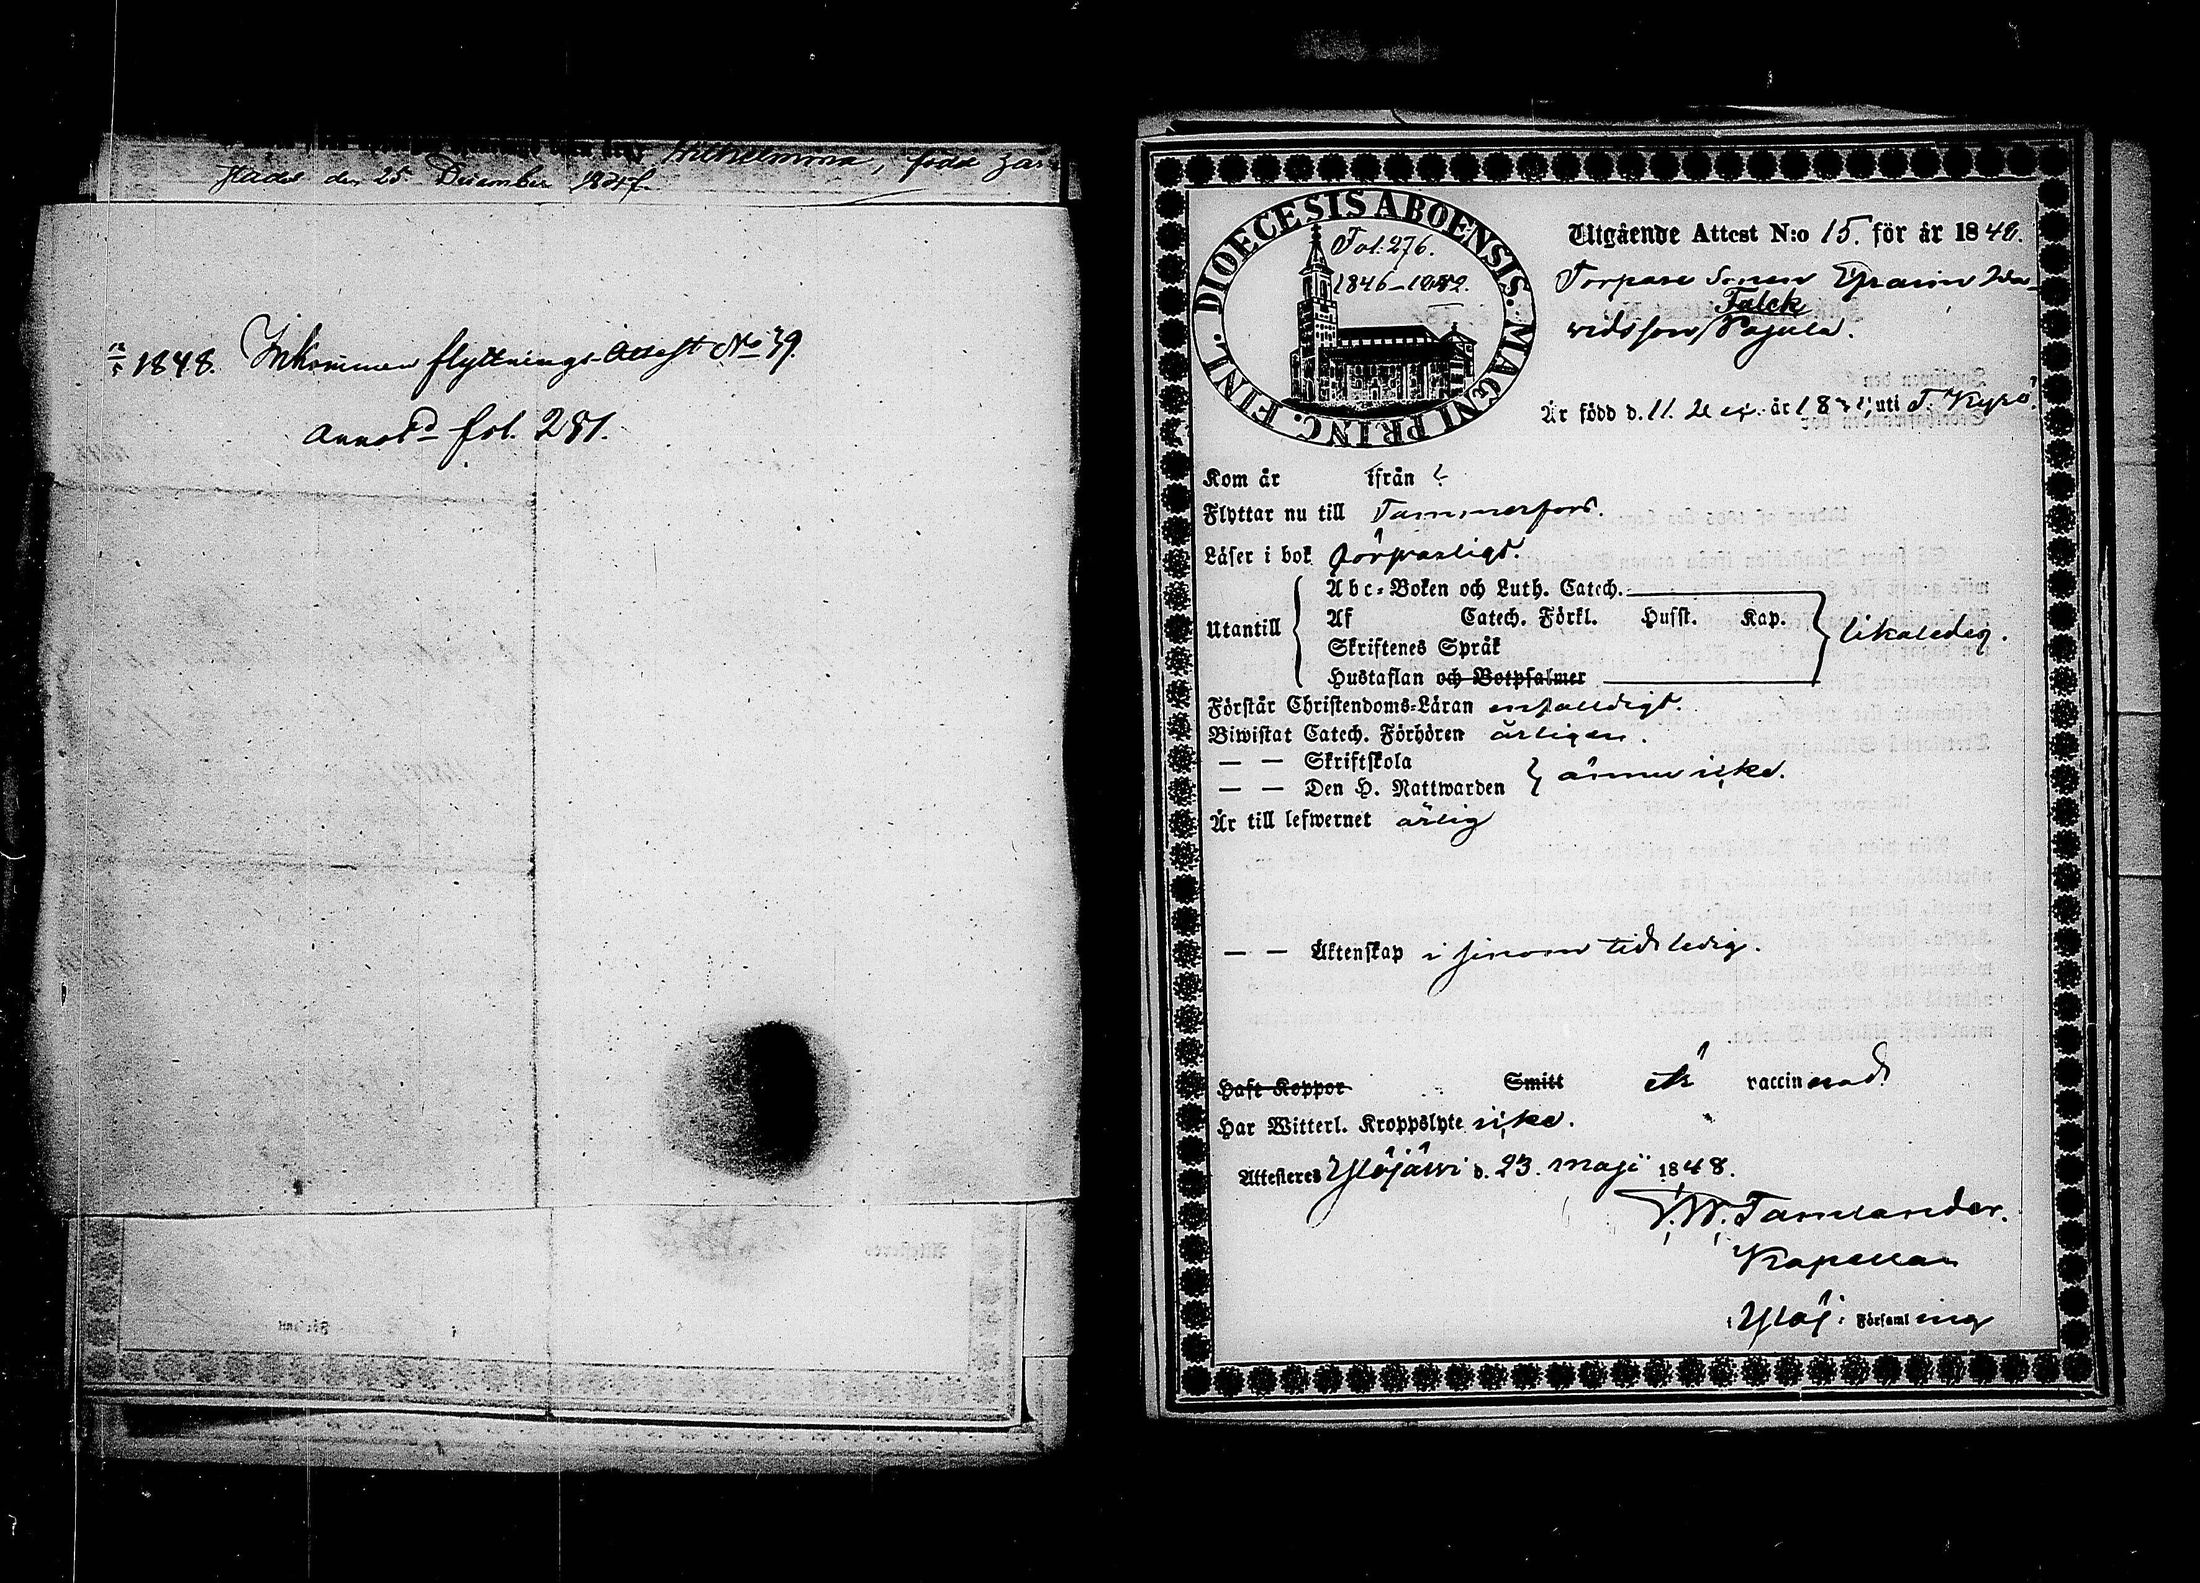 Wilhelmina, född här
Stades den 25 December
1848. Inkommen flyttnings-Attest No 39.
Annot^d fol. 281.
DIOECESIS ABOENSIS. MAGNI PRINC. FINL.
Fol. 276.
1846–1852.
Utgående Attest N:o 15. för år 1848.
Torpare Sonen Ephraim Da-
Falck
vidsson Pajula.
Är född d. 11. år 183 uti T. Kyrö.
Kom år ifrån
Flyttar nu till Tammerfors.
Läser i bok försvarligt.
Utantill
Abc-Boken och Luth. Catech.
Af Catech. Förkl. Husst. Kap. likaledes.
Skriftenes Språk
Hustaflan och Botpsalmer
Förstår Christendoms-Läran enfaldigt.
Biwistat Catech. Förhören årligen.
— — Skriftskola
— — Den H. Nattwarden ännu icke.
Är till lefwernet ärlig
— — Äktenskap i sinom tid ledig.
Haft Koppor Smitt är vaccinerad
Har Witterl. Kroppslyte icke.
Attesteres Ylöjärvi d. 23. Maji 1848.
Tamlander.
Kapellan
i Ylöj: Församling